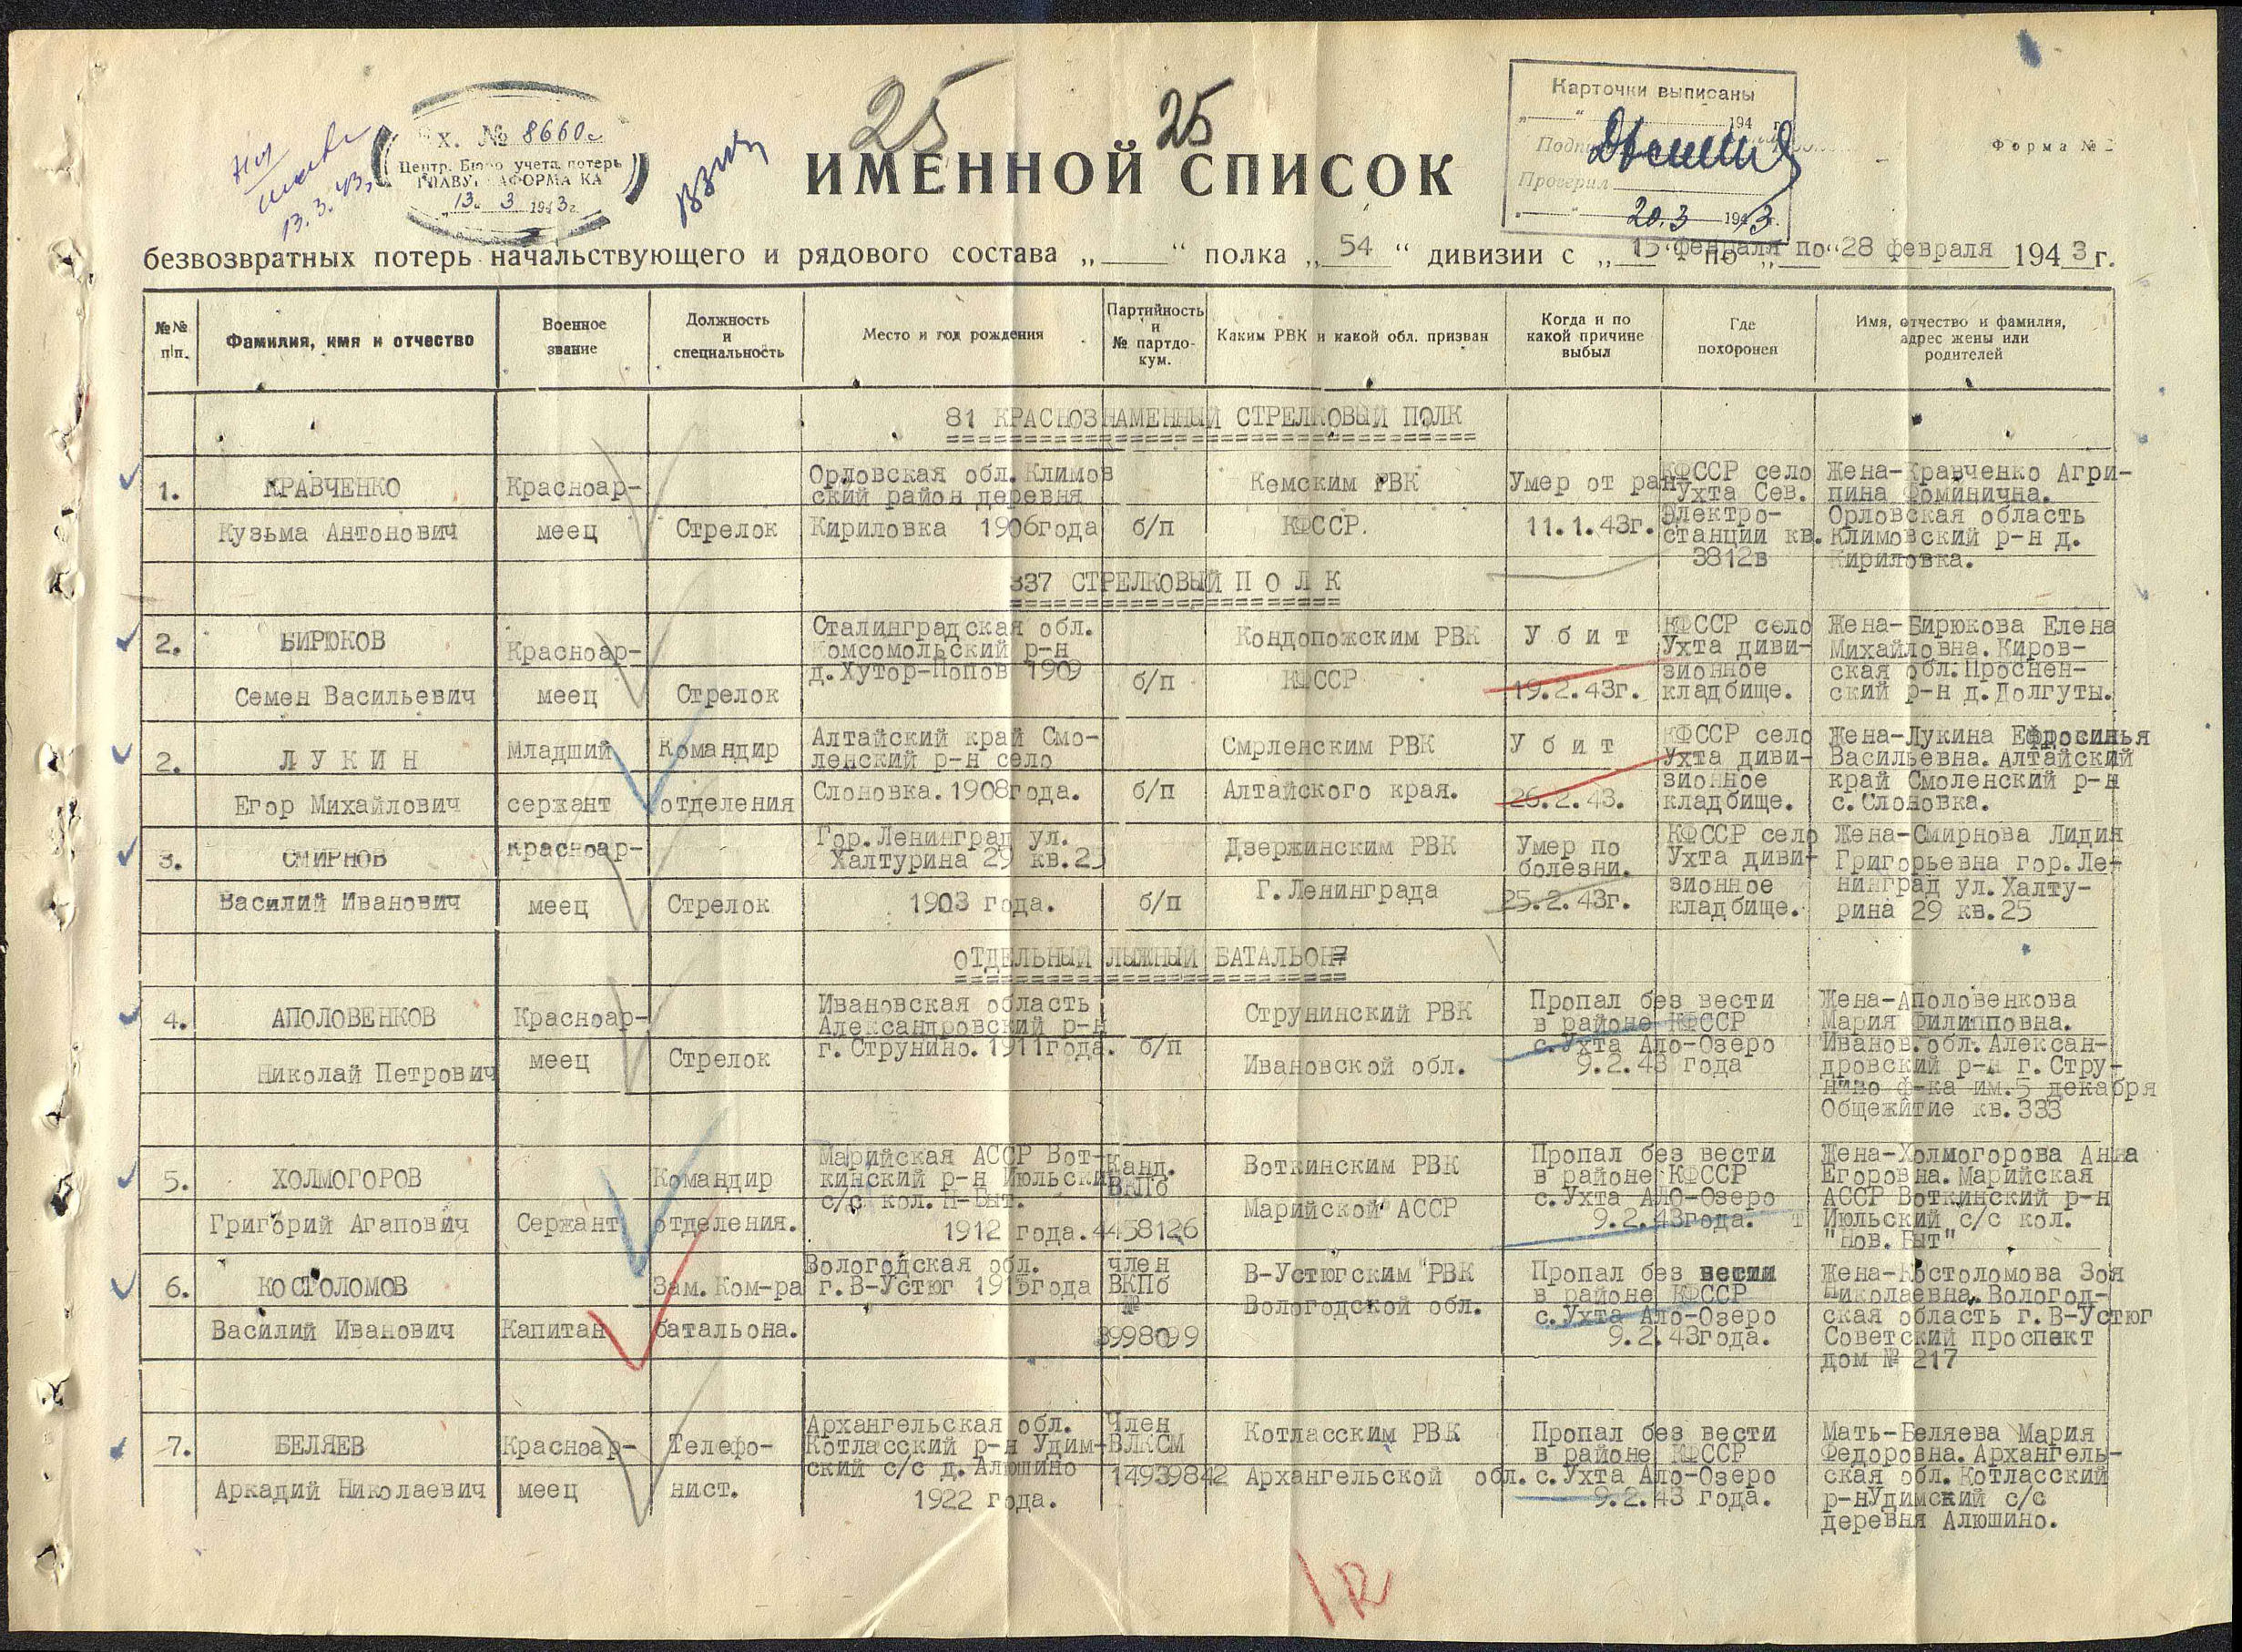 25 25
Х. № 8660с
Центр. Бюро учета потерь
ГЛАВУ АФОРМА КА
"13" 3 1943г.
13.3.43г.
Карточки выписаны
" " 194 г.
Проверил
" " 20.3 1943г.
Форма № 2
ИМЕННОЙ СПИСОК
безвозвратных потерь начальствующего и рядового состава „ “ полка „ 54 “ дивизии с „ 15 февраля по “28 февраля 1943 г.
№№ п/п.
Фамилия, имя и отчество
Военное звание
Должность и специальность
Место и год рождения
Партийность и № партдокум.
Каким РВК и какой обл. призван
Когда и по какой причине выбыл
Где похоронен
Имя, отчество и фамилия, адрес жены или родителей
81 КРАСНОЗНАМЕННЫЙ СТРЕЛКОВЫЙ ПОЛК
1.
КРАВЧЕНКО
Кузьма Антонович
Красноар-
меец
Стрелок
Орловская обл. Климов
ский район деревня
Кириловка 1906года
б/п
Кемским РВК
КФССР.
Умер от ран
11.1.43г.
КФССР село
Ухта Сев.
Электро-
станции кв.
3812в
Жена-Кравченко Агри-
пина Фоминична.
Орловская область
Климовский р-н д.
Кириловка.
337 СТРЕЛКОВЫЙ П О Л К
2.
БИРЮКОВ
Семен Васильевич
Красноар-
меец
Стрелок
Сталинградская обл.
Комсомольский р-н
д.Хутор-Попов 1909
б/п
Кондопожским РВК
КФССР
У б и т
19.2.43г.
КФССР село
Ухта диви-
зионное
кладбище.
Жена-Бирюкова Елена
Михайловна.Киров-
ская обл.Проснен-
ский р-н д.Долгуты.
2.
Л У К И Н
Егор Михайлович
Младший
сержант
Командир
отделения
Алтайский край Смо-
ленский р-н село
Слоновка.1908года.
б/п
Смрленским РВК
Алтайского края.
У б и т
26.2.43.
КФССР село
Ухта диви-
зионное
кладбище.
Жена-Лукина Ефросинья
Васильевна.Алтайский
край Смоленский р-н
с.Слоновка.
3.
СМИРНОВ
Василий Иванович
Красноар-
меец
Стрелок
Гор.Ленинград ул.
Халтурина 29 кв.25
1903 года.
б/п
Дзержинским РВК
Г.Ленинграда
Умер по
болезни.
25.2.43г.
КФССР село
Ухта диви-
зионное
кладбище.
Жена-Смирнова Лидия
Григорьевна гор.Ле-
нинград ул.Халту-
рина 29 кв.25
ОТДЕЛЬНЫЙ ЛЫЖНЫЙ БАТАЛЬОН
4.
АПОЛОВЕНКОВ
Николай Петрович
Красноар-
меец
Стрелок
Ивановская область
Александровский р-н
г.Струнино.1911года.
б/п
Струнинский РВК
Ивановской обл.
Пропал без вести
в районе КФССР
с.Ухта Ало-Озеро
9.2.43 года
Жена-Аполовенкова
Мария Филипповна.
Иванов.обл.Алексан-
дровский р-н г.Стру-
нино ф-ка им.5 декабря
Общежитие кв.333
5.
ХОЛМОГОРОВ
Григорий Агапович
Сержант
Командир
отделения.
Марийская АССР Вот-
кинский р-н Июльски
с/с кол. Н-Быт.
1912 года.
Канд.
ВКПб
4458126
Воткинским РВК
Марийской АССР
Пропал без вести
в районе КФССР
с.Ухта АЛО-Озеро
9.2.43года. т
Жена-Холмогорова Анна
Егоровна.Марийская
АССР Воткинский р-н
Июльский с/с кол.
"Нов.Быт"
6.
КОСТОЛОМОВ
Василий Иванович
Капитан
Зам.Ком-ра
батальона.
Вологодская обл.
г.В-Устюг 1915года
член
ВКПб
№
3998099
В-Устюгским РВК
Вологодской обл.
Пропал без вести
в районе КФССР
с.Ухта Ало-Озеро
9.2.43года.
Жена-Костоломова Зоя
Николаевна.Вологод-
ская область г.В-Устюг
Советский проспект
дом № 217
7.
БЕЛЯЕВ
Аркадий Николаевич
Красноар-
меец
Телефо-
нист.
Архангельская обл.
Котласский р-н Удим-
ский с/с д.Алюшино
1922 года.
Член
ВЛКСМ
14939842
Котласским РВК
Архангельской обл.
Пропал без вести
в районе КФССР
с.Ухта Ало-Озеро
9.2.43 года.
Мать-Беляева Мария
Федоровна.Архангель-
ская обл.Котласский
р-нУдимский с/с
деревня Алюшино.